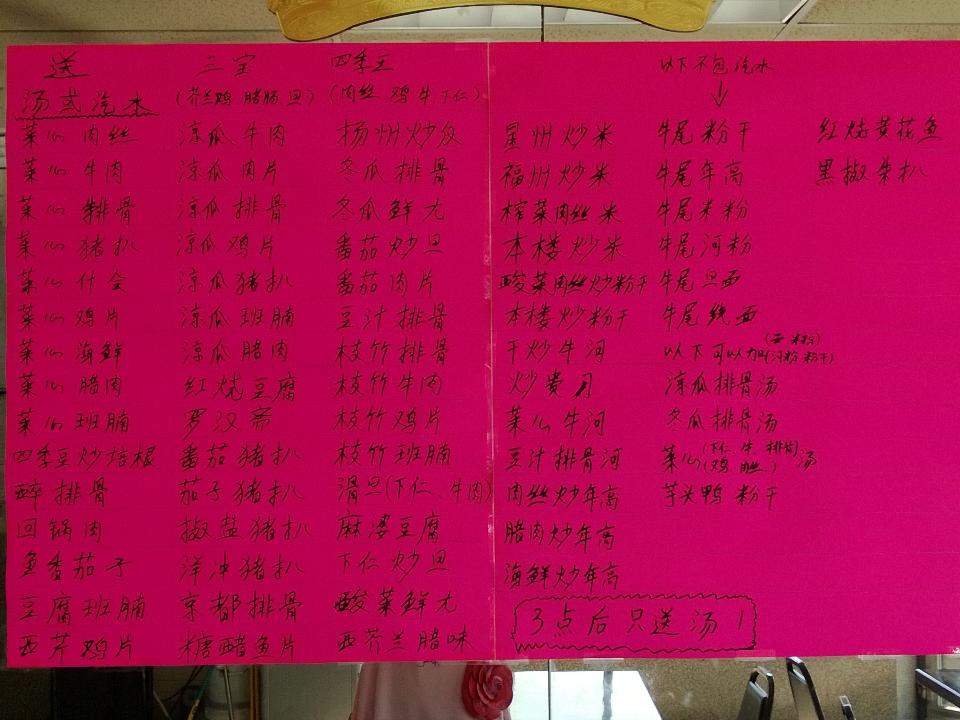 送
汤或汽水
菜心肉丝
菜心牛肉
菜心排骨
菜心猪扒
菜心什会
菜心鸡片
菜心海鲜
菜心腊肉
菜心班腩
四季豆炒培根
醉排骨
回锅肉
鱼番茄子
豆腐班腩
西芹鸡片
三宝
(芥兰鸡 腊肠 旦)
凉瓜牛肉
凉瓜肉片
凉瓜排骨
凉瓜鸡片
凉瓜猪扒
凉瓜班腩
凉瓜腊肉
红烧豆腐
罗汉斋
番茄猪扒
茄子猪扒
椒盐猪扒
洋冲猪扒
京都排骨
糖醋鱼片
四季豆
(肉丝 鸡 牛 下仁)
扬州炒反
冬瓜排骨
冬瓜鲜尤
番茄炒旦
番茄肉片
豆汁排骨
枝竹排骨
枝竹牛肉
枝竹鸡片
枝竹班腩
滑旦(下仁、牛肉)
麻婆豆腐
下仁炒旦
酸菜鲜尤
西芥兰腊味
星州炒米
福州炒米
榨菜肉丝米
本楼炒米
酸菜肉丝炒粉干
本楼炒粉干
干炒牛河
炒贵刁
菜心牛河
豆汁排骨河
肉丝炒年高
腊肉炒年高
海鲜炒年高
以下不包汽水
牛尾粉干
牛尾年高
牛尾米粉
牛尾河粉
牛尾旦面
牛尾线面
以下可以加(面 米粉 河粉 粉干)
凉瓜排骨汤
冬瓜排骨汤
菜心(下仁、牛 排骨 鸡、)汤
芋头鸭粉干
红烧黄花鱼
黑椒牛扒
3点后只送汤!